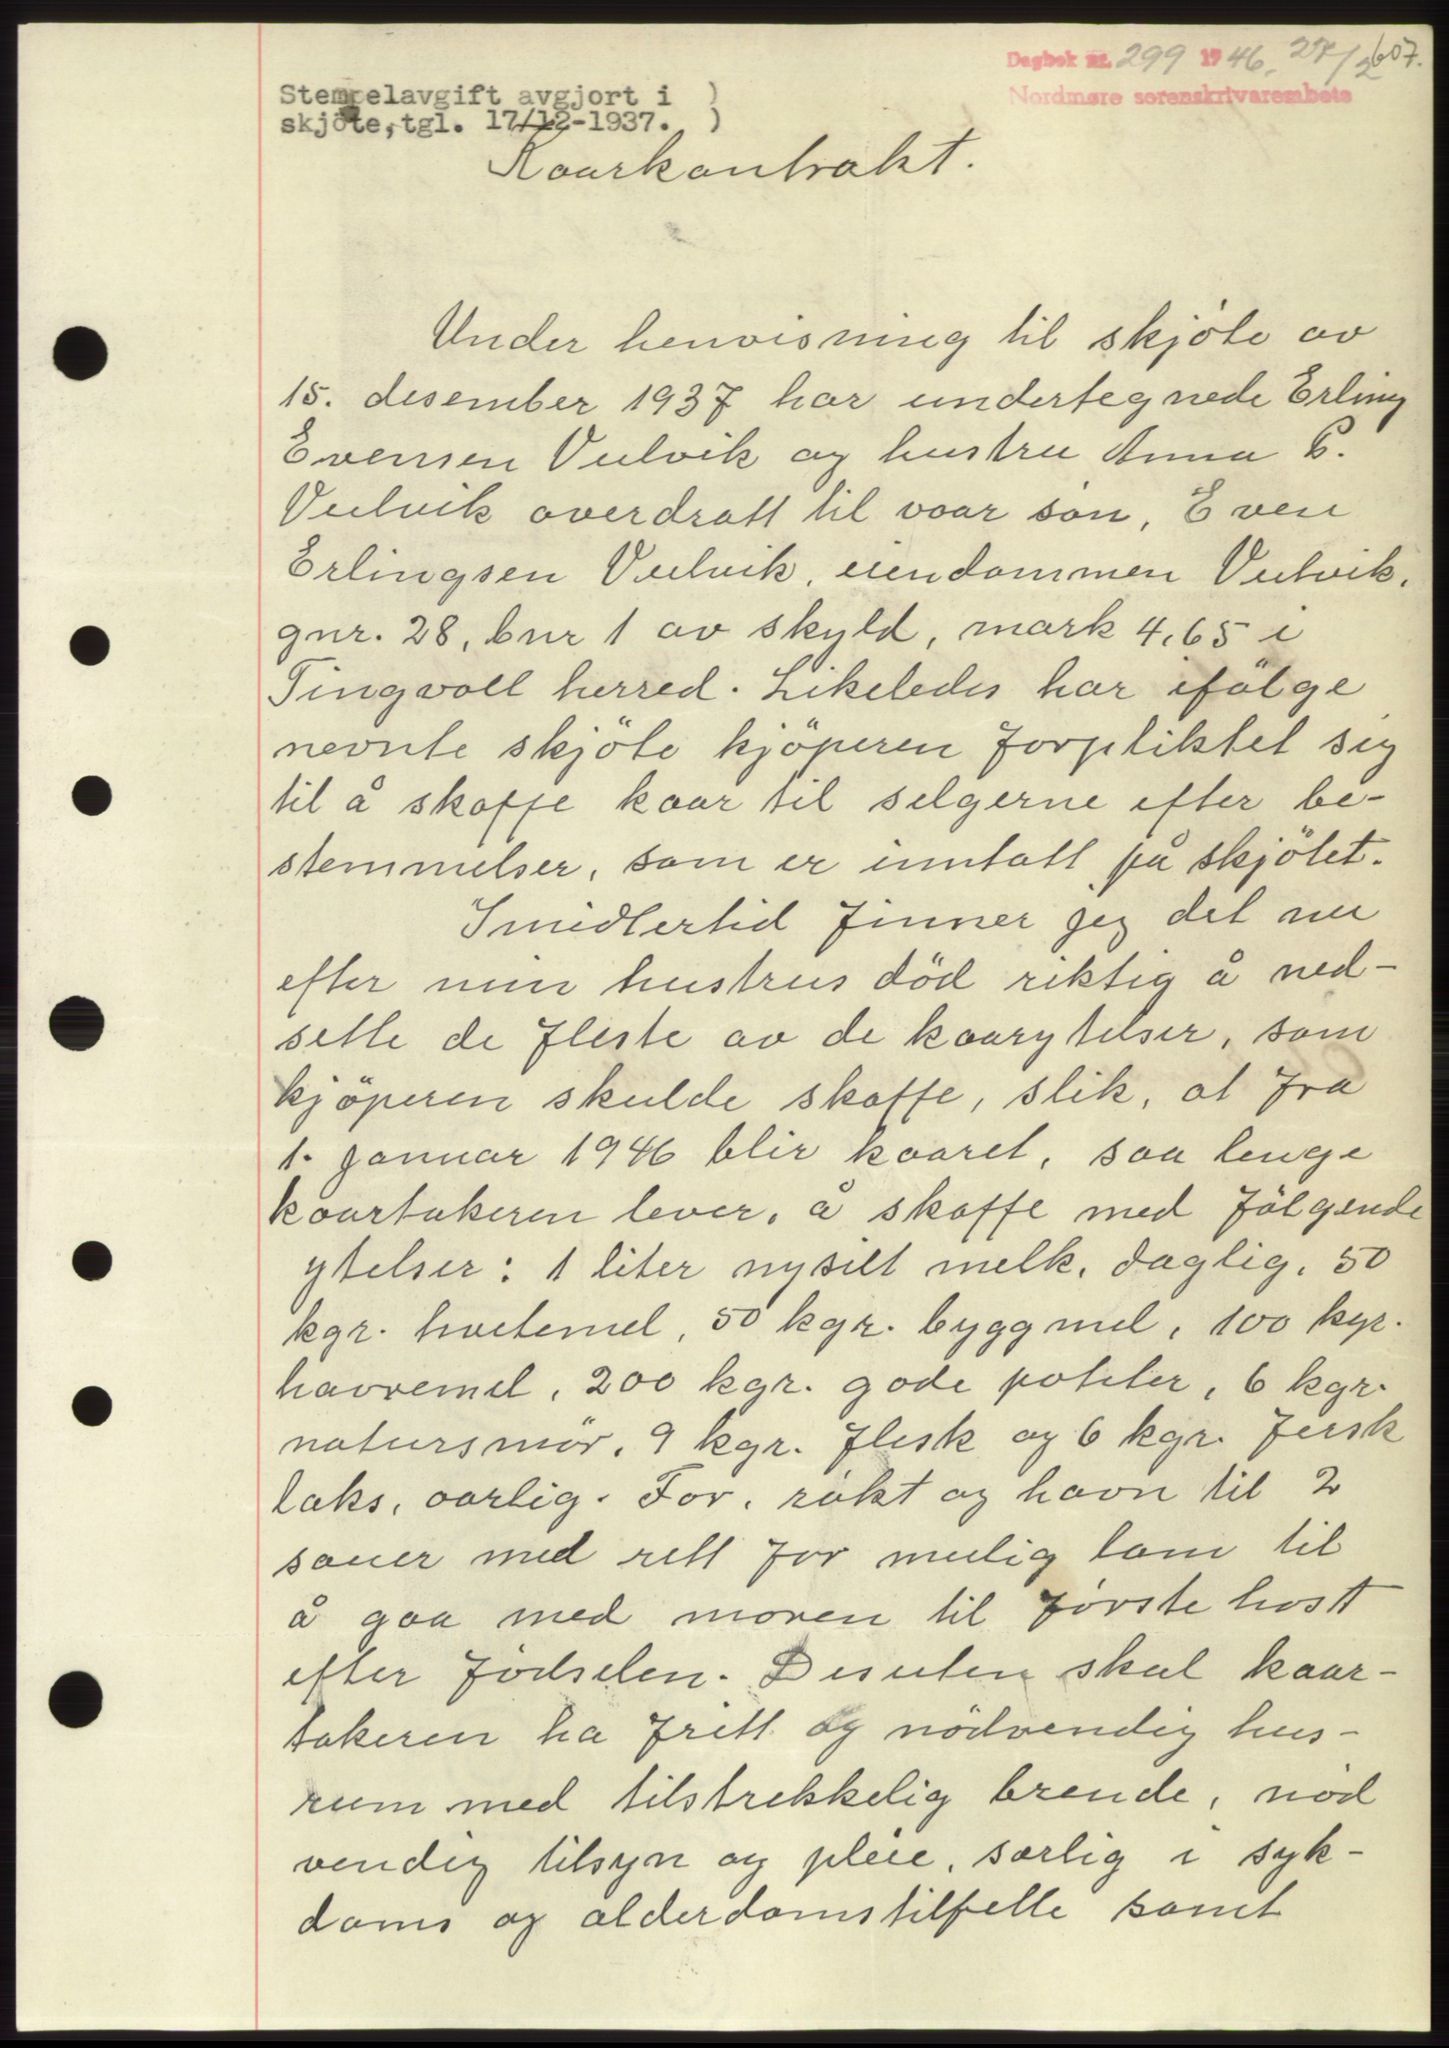 Dagbok nr. 299 1946. 27/2 607.
Nordmøre sorenskrivarembete
Stempelavgift avgjort i )
skjöte, tgl. 17/12-1937. )
Kaarkontrakt.
Under henvisning til skjöte av
15. desember 1937 har undertegnede Erling
Evensen Vulvik og hustru Anna P.
Vulvik overdratt til vaar sön, Even
Erlingsen Vulvik, eiendommen Vulvik,
gnr. 28, bnr 1 av skyld, mark 4,65 i
Tingvoll herred. Likeledes har ifölge
nevnte skjöte kjöperen forpliktet sig
til å skaffe kaar til selgerne efter be-
stemmelser, som er inntatt på skjötet.
Imidlertid finner jeg det nu
efter min hustrus död riktig å ned-
sette de fleste av de kaarytelser, som
kjöperen skulde skaffe, slik, at fra
1. januar 1946 blir kaaret, saa lenge
kaartakeren lever, å skaffe med fölgende
ytelser: 1 liter nysilt melk, daglig, 50
kgr. hvetemel, 50 kgr. byggmel, 100 kgr.
havremel, 200 kgr. gode poteter, 6 kgr.
natursmör, 9 kgr. flesk og 6 kgr. fersk
laks, aarlig. For, rökt og havn til 2
sauer med rett for mulig lam til
å gaa med moren til förste höst
efter födselen. Desuten skal kaar-
takeren ha fritt og nödvendig hus-
rum med tilstrekkelig brende, nöd
vendig tilsyn og pleie, særlig i syk-
doms og alderdomstilfelle samt